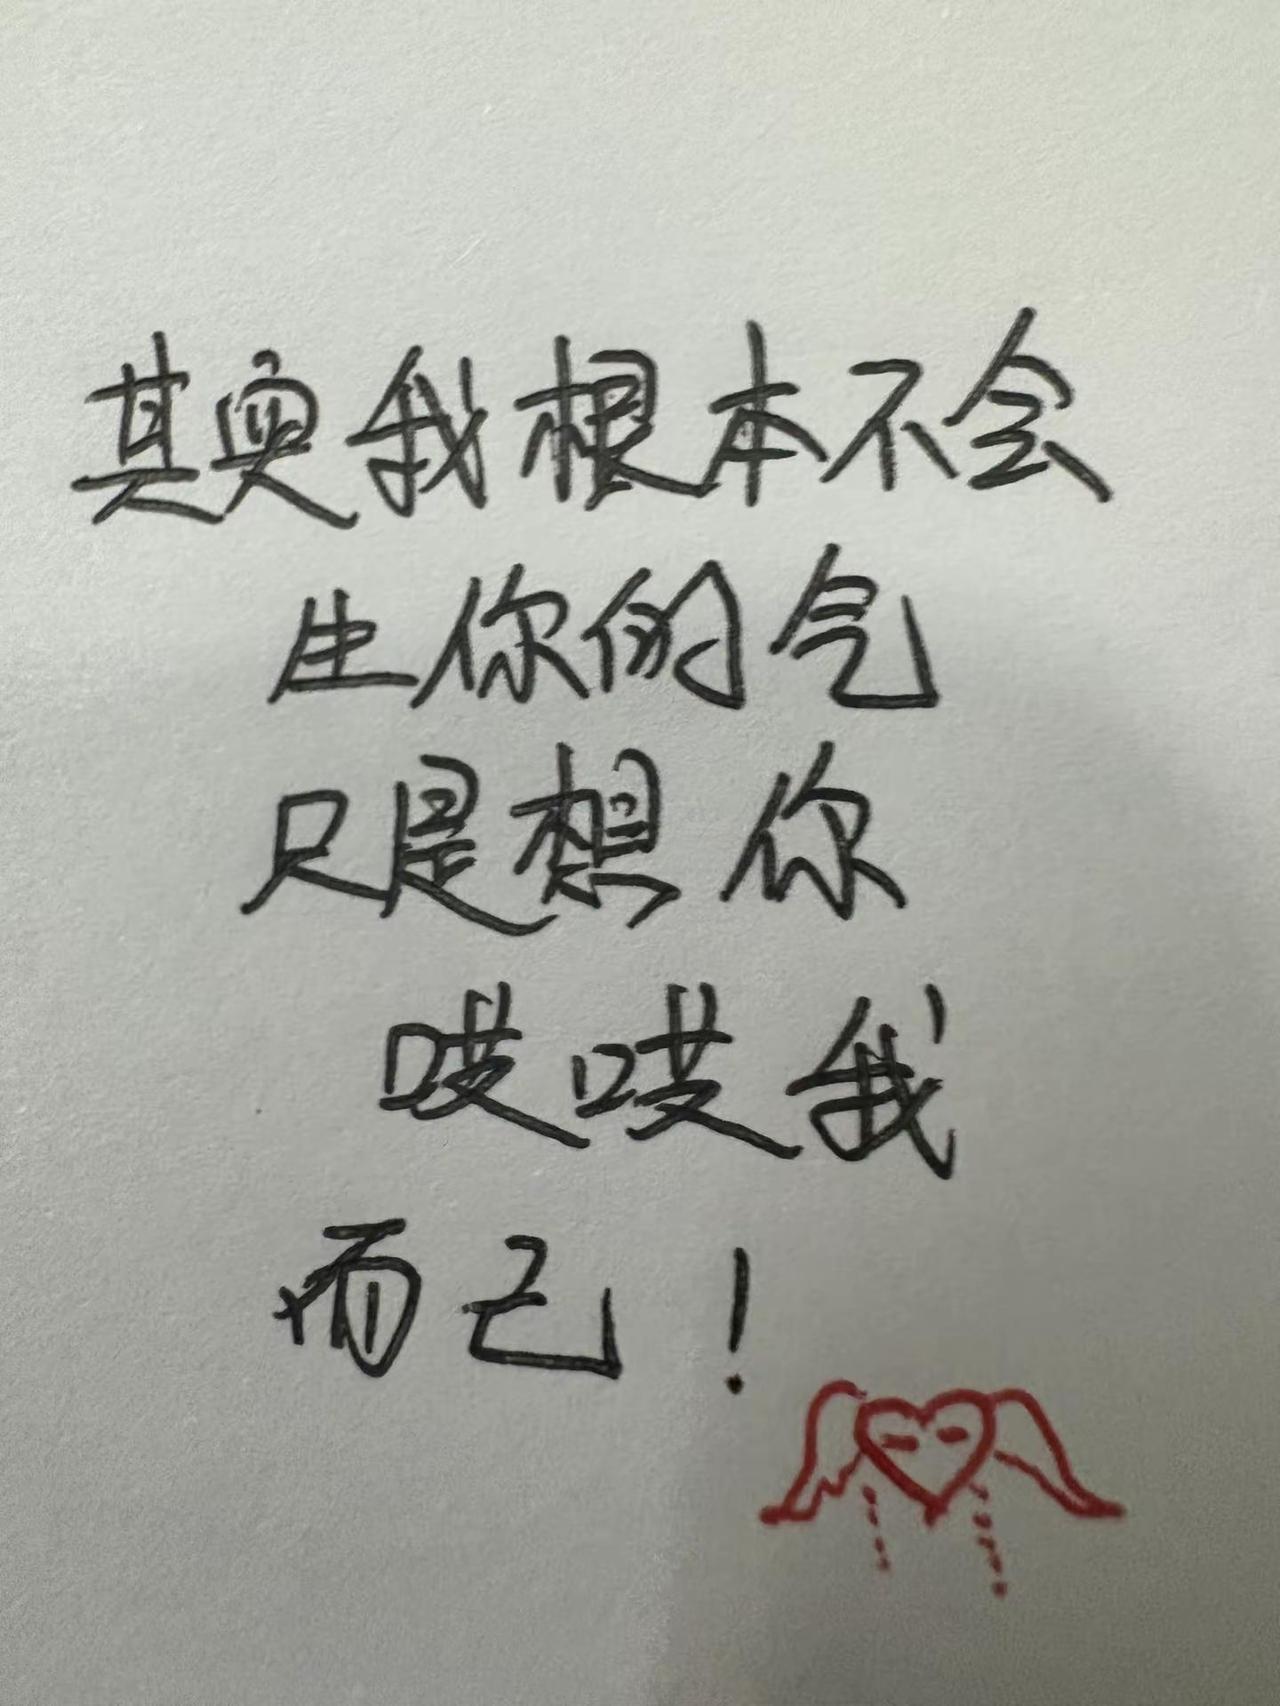 其实我根本不会
生你的气
只是想你
哄哄我
而已！